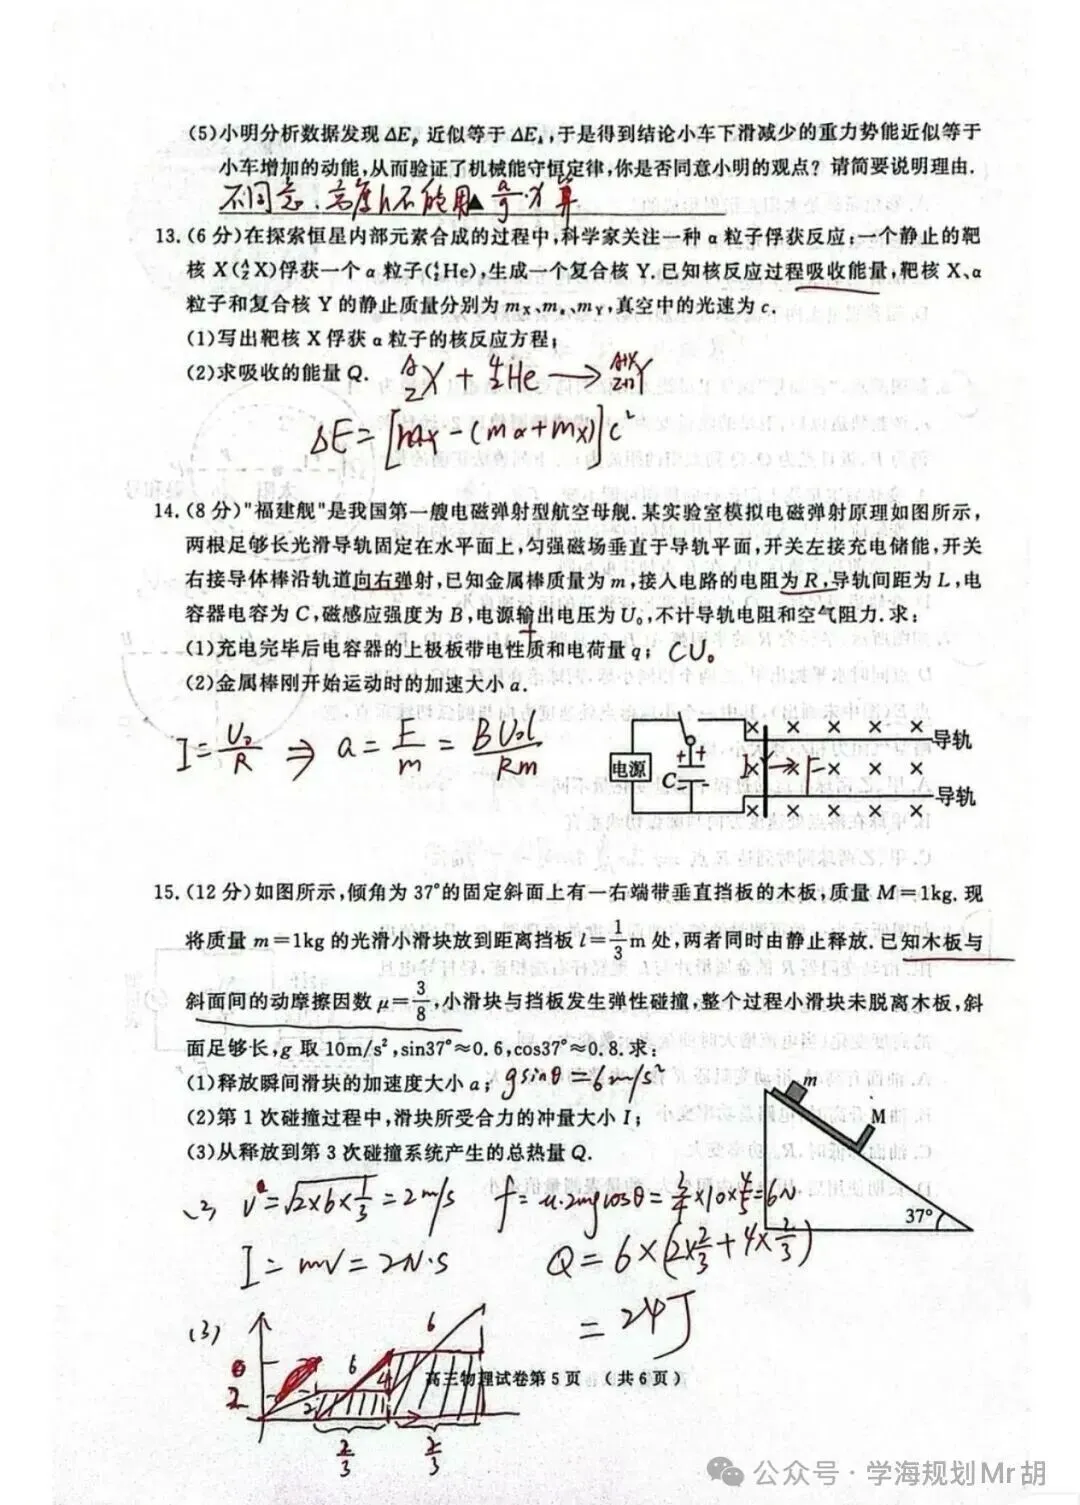 (5)小明分析数据发现 ΔEₚ 近似等于 ΔEₖ,于是得到结论小车下滑减少的重力势能近似等于
小车增加的动能,从而验证了机械能守恒定律,你是否同意小明的观点?请简要说明理由.
不同意.高度h不能用▲ a/g·x 算
13.(6分)在探索恒星内部元素合成的过程中,科学家关注一种 α 粒子俘获反应:一个静止的靶
核 X(ᴬ_Z X)俘获一个 α 粒子(⁴₂He),生成一个复合核 Y.已知核反应过程吸收能量,靶核 X、α
粒子和复合核 Y 的静止质量分别为 mX、mα、mY,真空中的光速为 c.
(1)写出靶核 X 俘获 α 粒子的核反应方程;
(2)求吸收的能量 Q.
ᴬ_Z X + ⁴₂He → ᴬ⁺⁴_Z+2 Y
ΔE = [ – (mα+mX)]c²
14.(8分)"福建舰"是我国第一艘电磁弹射型航空母舰.某实验室模拟电磁弹射原理如图所示,
两根足够长光滑导轨固定在水平面上,匀强磁场垂直于导轨平面,开关左接充电储能,开关
右接导体棒沿轨道向右弹射,已知金属棒质量为 m,接入电路的电阻为 R,导轨间距为 L,电
容器电容为 C,磁感应强度为 B,电源输出电压为 U₀,不计导轨电阻和空气阻力.求:
(1)充电完毕后电容器的上极板带电性质和电荷量 q; CU₀
+
(2)金属棒刚开始运动时的加速大小 a.
I = U₀/R ⇒ a = F/m = BU₀l/Rm
电源 C + + - I F 导轨
导轨
15.(12分)如图所示,倾角为 37°的固定斜面上有一右端带垂直挡板的木板,质量 M=1kg.现
将质量 m=1kg 的光滑小滑块放到距离挡板 l=1/3 m 处,两者同时由静止释放.已知木板与
斜面间的动摩擦因数 μ=3/8,小滑块与挡板发生弹性碰撞,整个过程小滑块未脱离木板,斜
面足够长,g 取 10m/s²,sin37°≈0.6,cos37°≈0.8.求:
(1)释放瞬间滑块的加速度大小 a; gsinθ = 6m/s²
(2)第 1 次碰撞过程中,滑块所受合力的冲量大小 I;
(3)从释放到第 3 次碰撞系统产生的总热量 Q.
m
M
37°
(2) v = √2×6×1/3 = 2m/s f = μ·2mgcosθ = ×10×4/5 = 6N
I = mv = 2N·s Q = 6×(2×2/3 + 4×2/3)
= 24J
(3)
6
6
2 2 4
2/3 2/3
高三物理试卷第 5 页 (共 6 页)
公众号·学海规划Mr胡